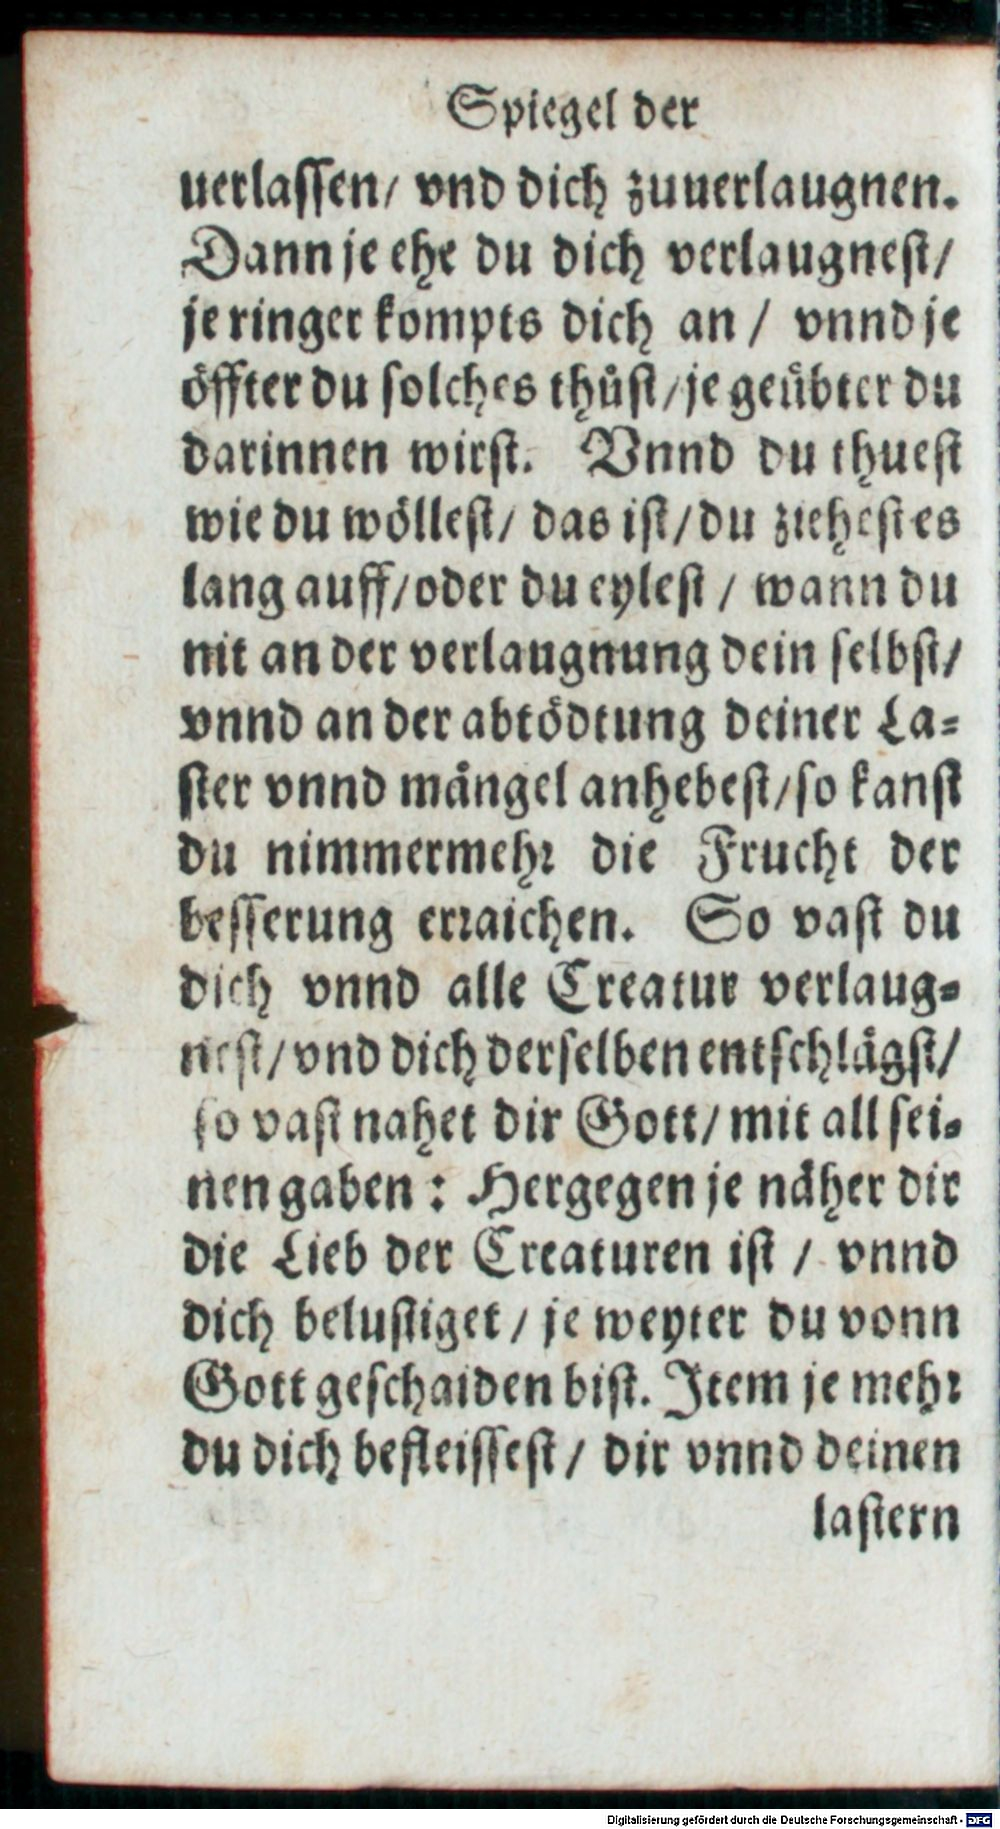 Spiegel der
uerlassen/ vnd dich zuuerlaugnen.
Dann je ehe du dich verlaugnest/
je ringer kompts dich an / vnnd je
öffter du solches thůst/ je geübter du
darinnen wirst. Vnnd du thuest
wie du wöllest/ das ist/ du ziehest es
lang auff/ oder du eylest / wann du
nit an der verlaugnung dein selbst/
vnnd an der abtödtung deiner La-
ster vnnd mängel anhebest/ so kanst
du nimmermehr die Frucht der
besserung erraichen. So vast du
dich vnnd alle Creatur verlaug-
nest/ vnd dich derselben entschlägst/
so vast nahet dir Gott/ mit all sei-
nen gaben : Hergegen je näher dir
die Lieb der Creaturen ist / vnnd
dich belustiget / je weyter du vonn
Gott geschaiden bist. Item je mehr
du dich befleissest / dir vnnd deinen
lastern
Digitalisierung gefördert durch die Deutsche Forschungsgemeinschaft - DFG